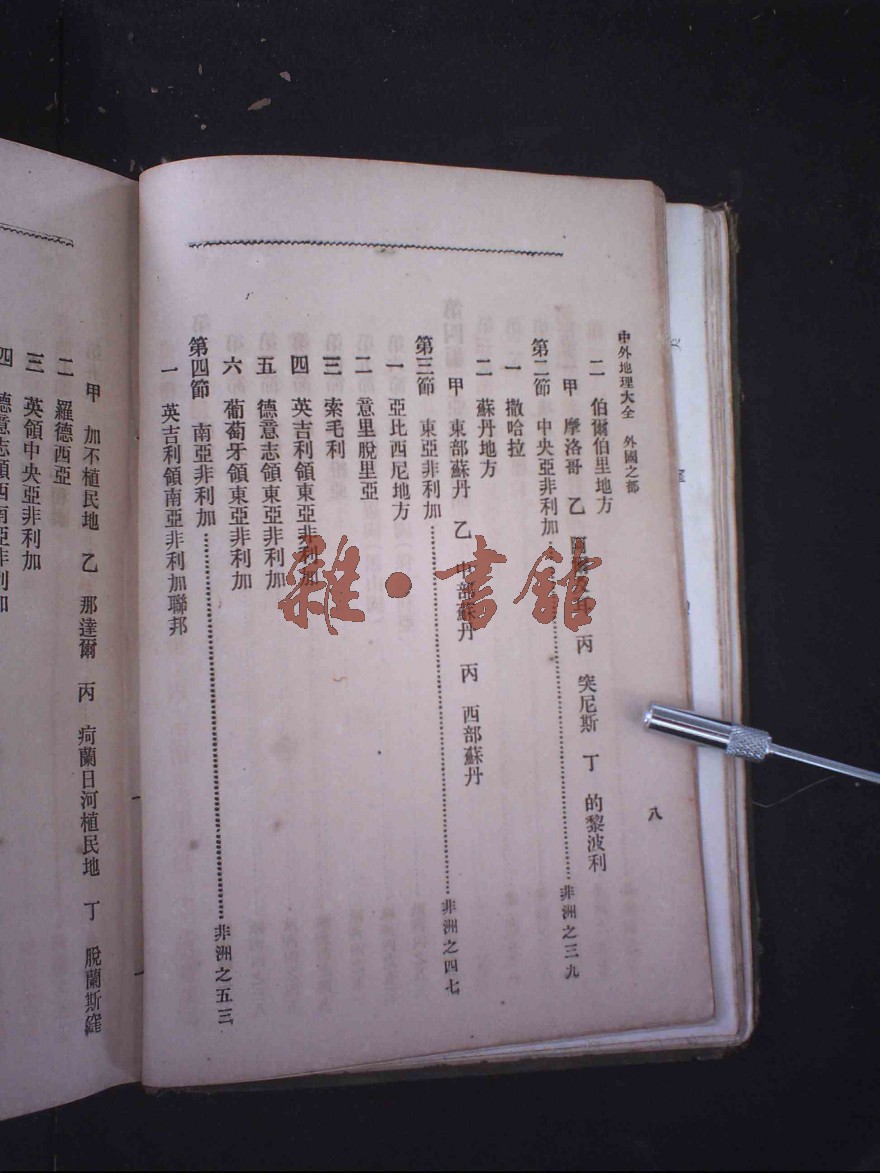 中外地理大全 外國之部 八
二 伯爾伯里地方
甲 摩洛哥 乙 丙 突尼斯 丁 的黎波利
第二節 中央亞非利加 非洲之三九
一 撒哈拉
二 蘇丹地方
甲 東部蘇丹 乙 中部蘇丹 丙 西部蘇丹
第三節 東亞非利加 非洲之四七
一 亞比西尼地方
二 意里脫里亞
三 索毛利
四 英吉利領東亞非利加
五 德意志領東亞非利加
六 葡萄牙領東亞非利加
第四節 南亞非利加 非洲之五三
一 英吉利領南亞非利加聯邦
甲 加不植民地 乙 那達爾 丙 疴蘭日河植民地 丁 脫蘭斯窪
二 羅德西亞
三 英領中央亞非利加
四 德意志領西南亞非利加
雜·書館